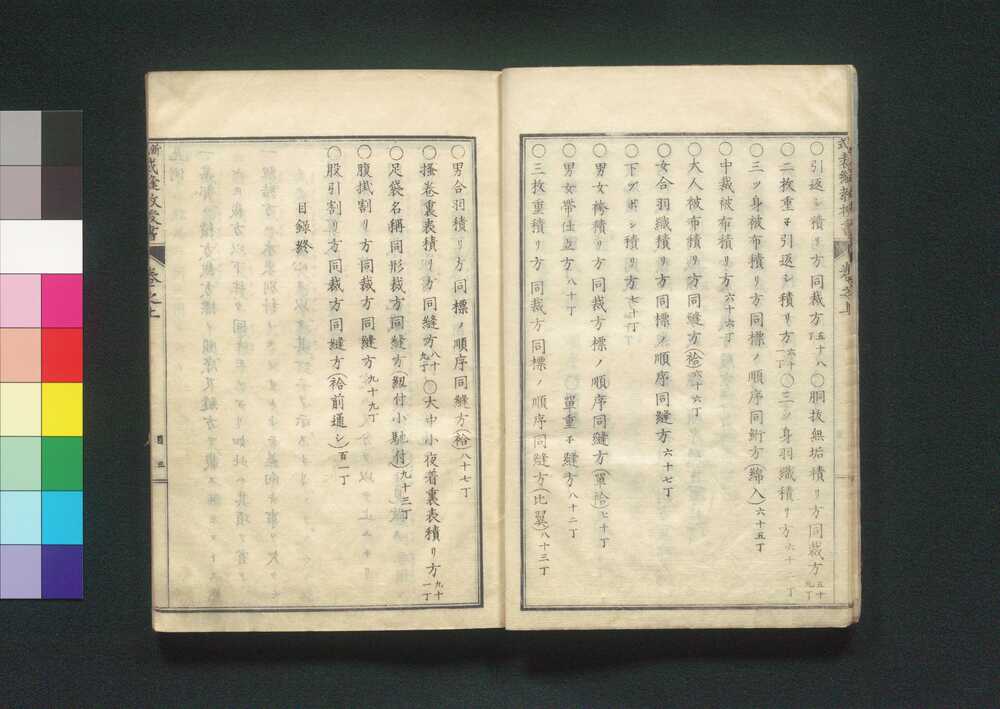 〇引返シ積リ方同裁方五十八丁〇胴抜無垢積リ方同裁方五十九丁
〇二枚重子引返シ積リ方六十一丁〇三ツ身羽織積リ方六十二丁
〇三ツ身被布積リ方同標ノ順序同絎方(綿入)六十五丁
〇中裁被布積リ方六十六丁
〇大人被布積リ方同縫方(袷)六十六丁
〇女合羽織積リ方同標ノ順序同縫方六十七丁
〇下ツボシ積リ方七十丁
〇男女袴積リ方同裁方標ノ順序同縫方(單袷)七十丁
〇男女帶仕立方八十丁〇單重子縫方八十二丁
〇三枚重積リ方同裁方同標ノ順序同縫方(比翼)八十三丁
裁縫教授書
卷之上
〇男合羽積リ方同標ノ順序同縫方(袷)八十七丁
〇搔卷裏表積リ方同縫方八十九丁〇大中小夜着裏表積リ方九十一丁
〇足袋名稱同形裁方同縫方(紐付小馳付)九十三丁
〇腹掛割リ方同裁方同縫方九十九丁
〇股引割リ方同裁方同縫方(袷前通シ)百一丁
目錄終
新
裁縫教授書
卷之上
目五